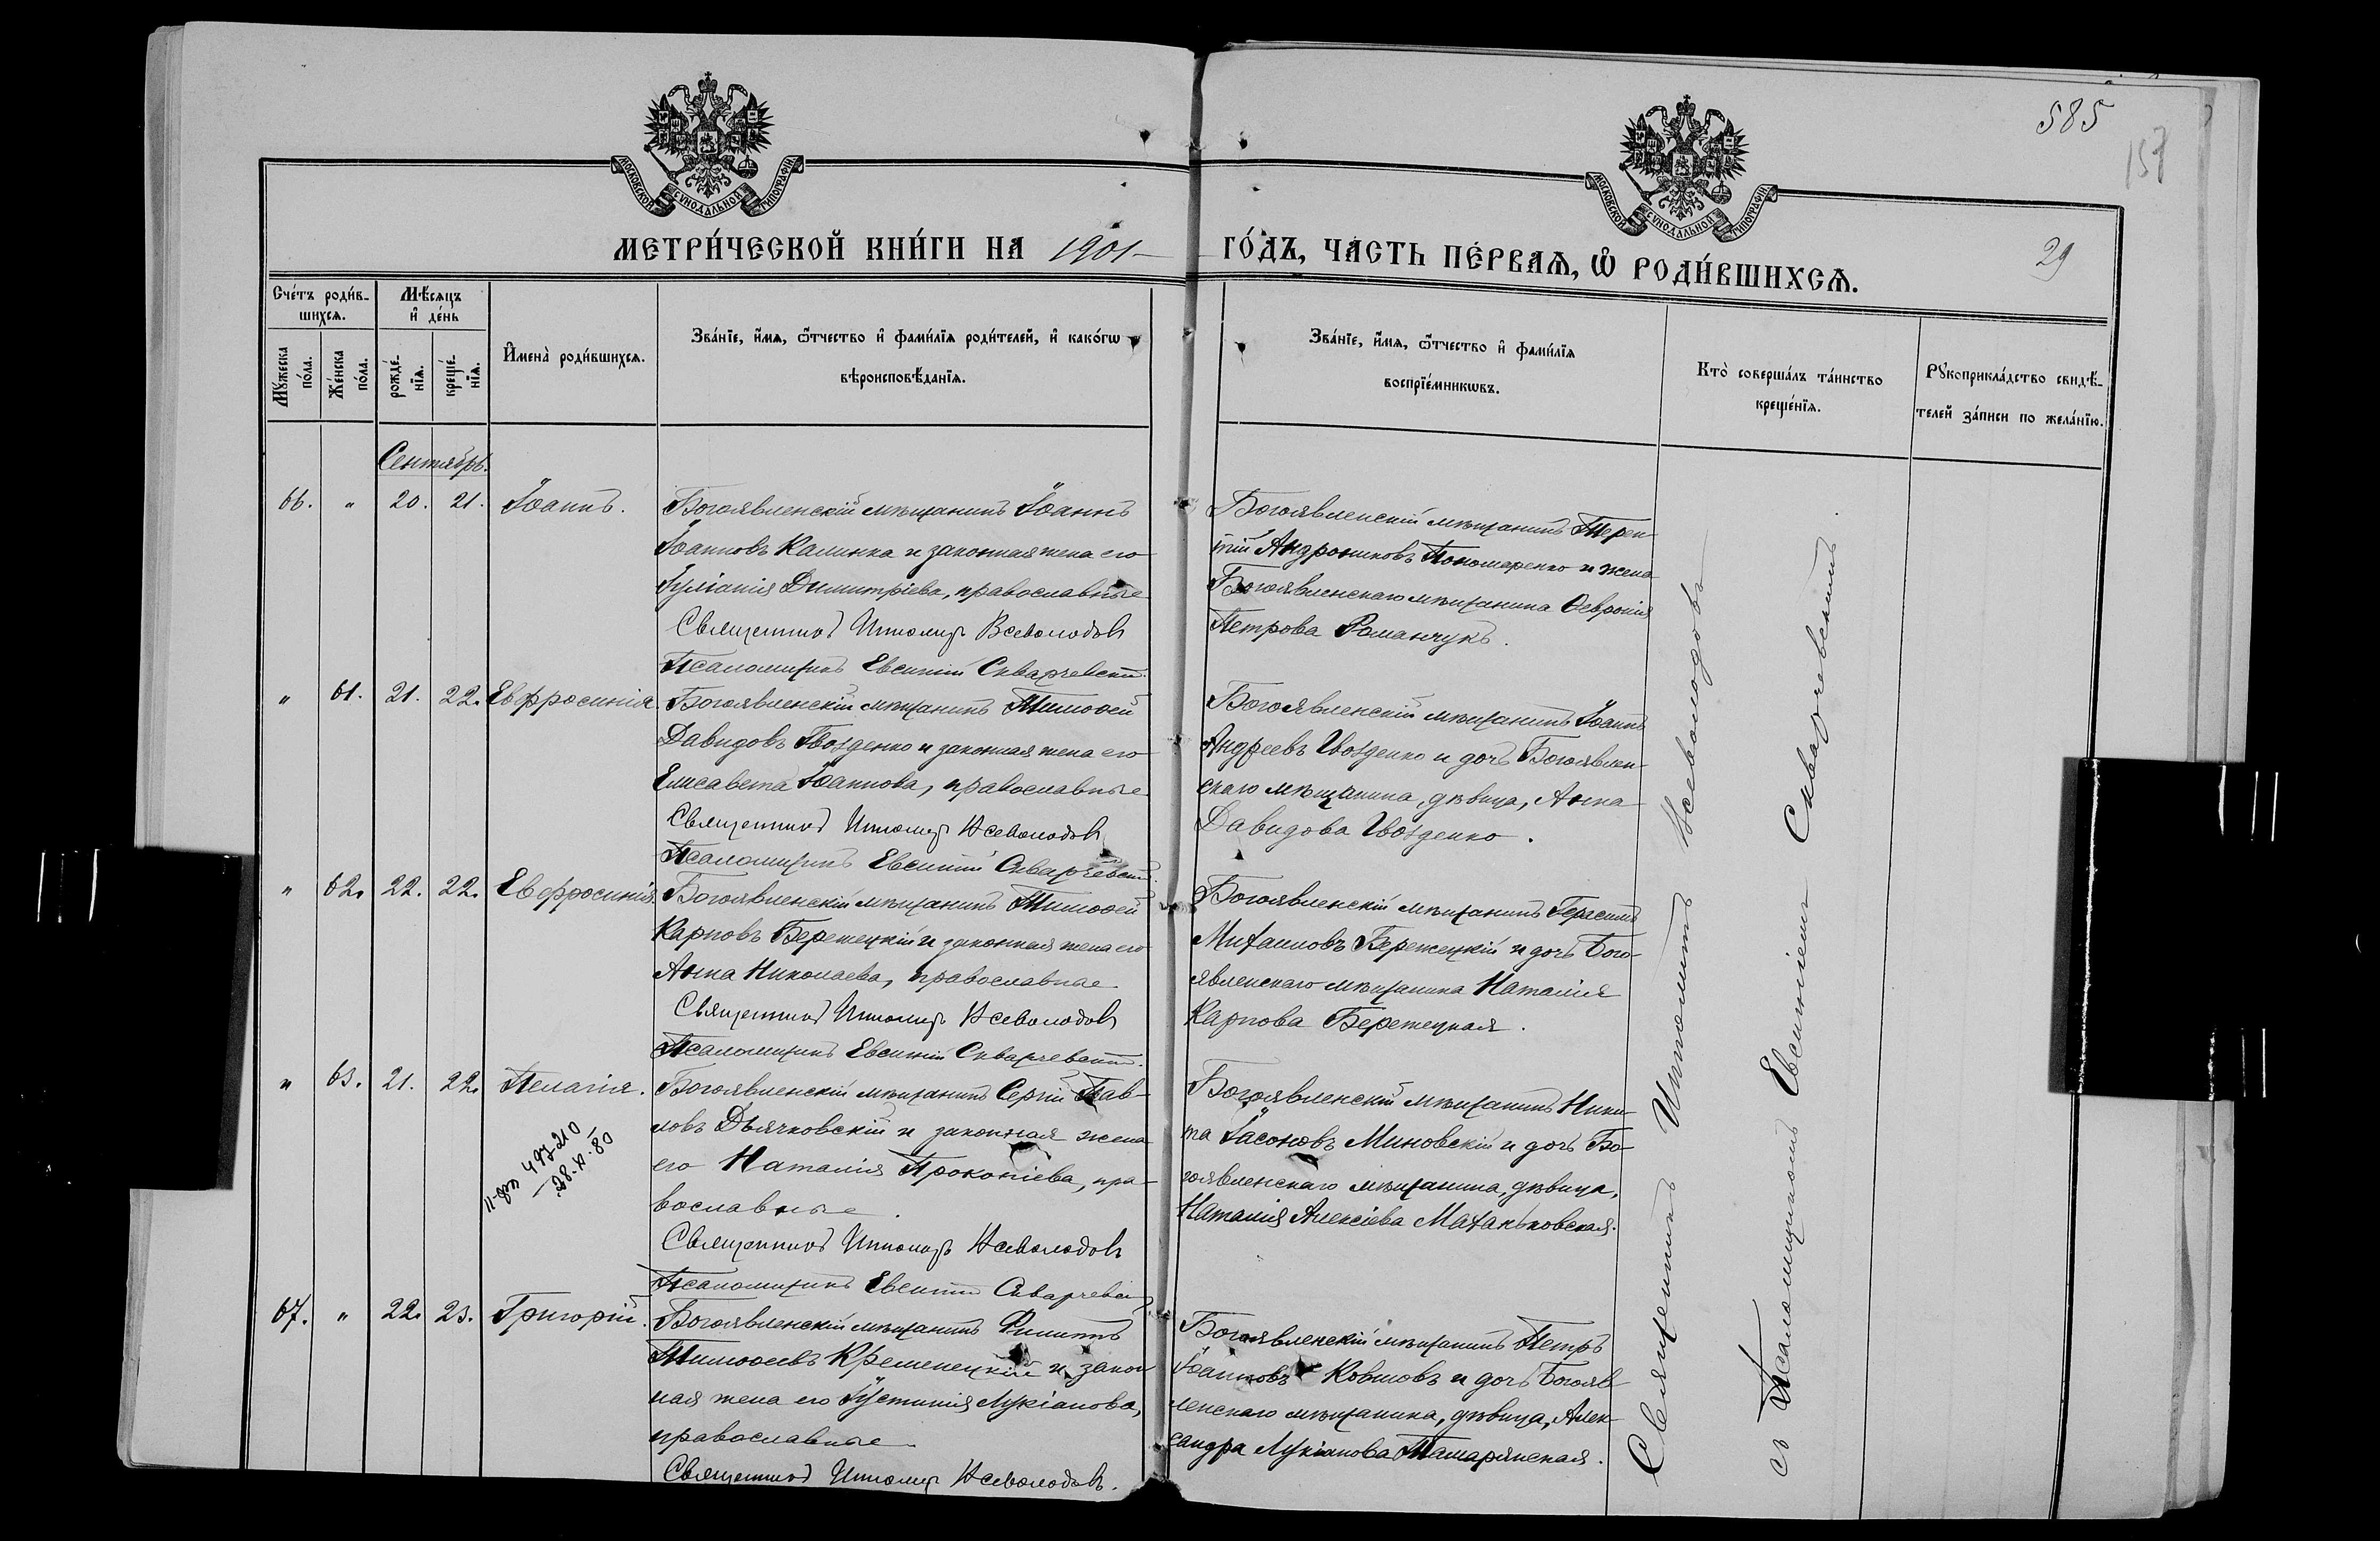 585
157
29
МОСКОВСКОЙ СѴНОДАЛЬНОЙ ТИПОГРАФІИ
МОСКОВСКОЙ СѴНОДАЛЬНОЙ ТИПОГРАФІИ
МЕТРИ́ЧЕСКОЙ КНИ́ГИ НА 1901 ГО́ДЪ, ЧА́СТЬ ПЕ́РВАѦ, Ѽ РОДИ́ВШИХСѦ.
Сче́тъ роди́в-
шихсѧ.
Мꙋ́жеска по́ла.
Же́нска по́ла.
Мѣ́сѧцъ и҆ де́нь
рожде́-
нїѧ.
креще́-
нїѧ.
И҆мена̀ роди́вшихсѧ.
Зва́нїе, и҆́мѧ, ѻ҆́тчество и҆ фами́лїѧ роди́телей, и҆ како́гѡ
вѣроисповѣ́данїѧ.
Зва́нїе, и҆́мѧ, ѻ҆́тчество и҆ фами́лїѧ
воспрїе́мникѡвъ.
Кто̀ соверша́лъ та́инство
креще́нїѧ.
Рꙋкоприкла́дство свидѣ́-
телей за́писи по жела́нїю.
Сентябрь.
66. " 20. 21. Іоаннъ.
Богоявленскій мѣщанинъ Іоаннъ
Іоанновъ Калинка и законная жена его
Іуліанія Димитріева, православные
Священникъ Ипполитъ Всеволодовъ
Псаломщикъ Евсигній Скварчевскій.
Богоявленскій мѣщанинъ Терен-
тій Андрониковъ Пономаренко и жена
Богоявленскаго мѣщанина Ѳевронія
Петрова Романчукъ.
" 61. 21. 22. Евфросинія.
Богоявленскій мѣщанинъ Тимоѳей
Давидовъ Гвозденко и законная жена его
Елисавета Іоаннова, православные
Священникъ Ипполитъ Всеволодовъ
Псаломщикъ Евсигній Скварчевскій.
Богоявленскій мѣщанинъ Іоаннъ
Андреевъ Гвозденко и дочь Богоявлен-
скаго мѣщанина, дѣвица, Анна
Давидова Гвозденко.
" 62. 22. 22. Евфросинія.
Богоявленскій мѣщанинъ Тимоѳей
Карповъ Бережецкій и законная жена его
Анна Николаева, православные.
Священникъ Ипполитъ Всеволодовъ
Псаломщикъ Евсигній Скварчевскій.
Богоявленскій мѣщанинъ Герасимъ
Михаиловъ Бережецкій и дочь Бого-
явленскаго мѣщанина Наталія
Карпова Бережецкая.
" 63. 21. 22. Пелагія.
28.XI.80
Богоявленскій мѣщанинъ Сергій Пав-
ловъ Дьячковскій и законная жена
его Наталія Прокопіева, пра-
вославные.
Священникъ Ипполитъ Всеволодовъ
Псаломщикъ Евсигній Скварчевскій
Богоявленскій мѣщанинъ Ники-
та Іасоновъ Миновскій и дочь Бо-
гоявленскаго мѣщанина, дѣвица,
Наталія Алексіева Маханьковская.
67. " 22. 23. Григорій.
Богоявленскій мѣщанинъ Филиппъ
Тимоѳеевъ Кременецкій и закон
ная жена его Іустинія Лукіанова,
православные.
Священникъ Ипполитъ Всеволодовъ.
Богоявленскій мѣщанинъ Петръ
Іоанновъ Ковшовъ и дочь Богояв-
ленскаго мѣщанина, дѣвица, Алек-
сандра Лукіанова
Священникъ Ипполитъ Всеволодовъ
съ Псаломщикомъ Евсигніемъ Скварчевскимъ.